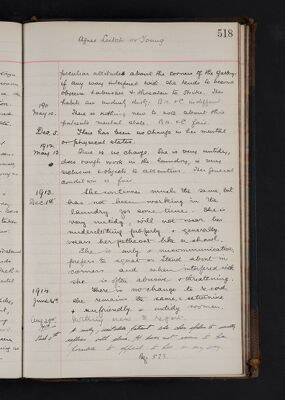 Agnes Leitch or Young
518
peculiar attitudes about the corners of the Gallery
if any way interfered with she tends to become
obscene & abusive & threaten to strike. Her
habits are unduly dirty. B.H. & C. indifferent
May 10. There is nothing new to note about this
patient's mental state. B.H. & C. fair
Dec. 5. There has been no change in her mental
or physical states.
1912.
May 13 There is no change. She is very untidy,
does rough work in the laundry, is very
& objects to attention. Her general
condition is fair
1913. She continues much the same, but
Dec 1st has not been working in the
laundry for some time. She is
very untidy, will not wear her
underclothing properly & generally
wears her petticoat like a shawl.
She is only & uncommunicative,
prefers to squat or stand about in
corners and when interfered with
she is often abusive & threatening.
1914. There is no change to record
June 26th she remains the same, a
& unfriendly & untidy woman.
Aug 29th Nothing new to report.
A untidy, irritable patient who often
replies with abuse. It does not seem to be
possible to in any way.
Pg. 523.